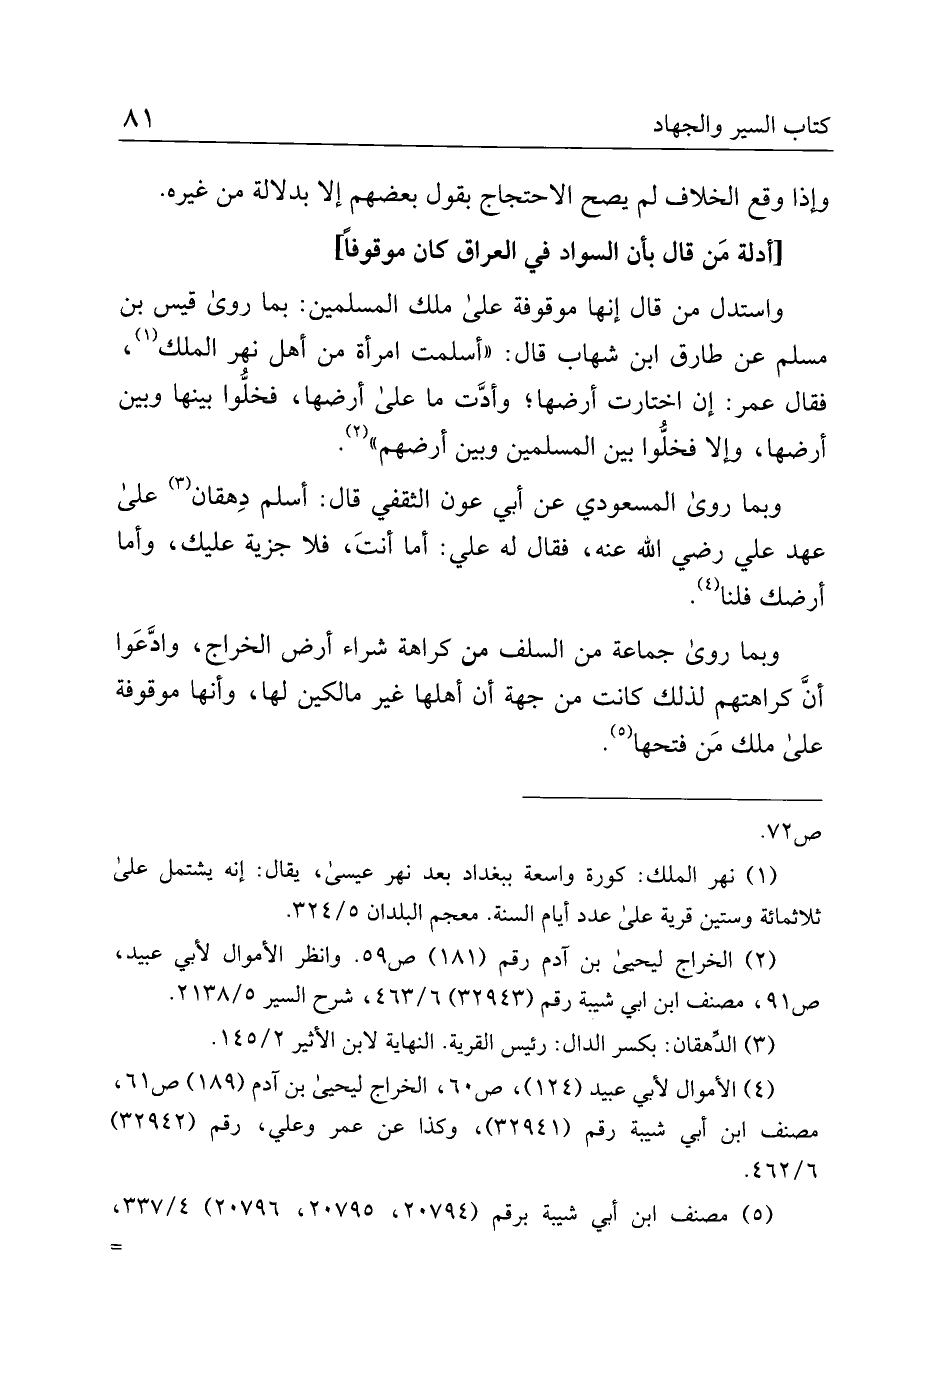 كتاب السير والجهاد ٨١
وإذا وقع الخلاف لم يصح الاحتجاج بقول بعضهم إلا بدلالة من غيره.
[أدلة مَن قال بأن السواد في العراق كان موقوفاً]
واستدل من قال إنها موقوفة علىٰ ملك المسلمين: بما روىٰ قيس بن
مسلم عن طارق ابن شهاب قال: «أسلمت امرأة من أهل نهر الملك(١)،
فقال عمر: إن اختارت أرضها؛ وأدَّت ما علىٰ أرضها، فخلُّوا بينها وبين
أرضها، وإلا فخلُّوا بين المسلمين وبين أرضهم»(٢).
وبما روىٰ المسعودي عن أبي عون الثقفي قال: أسلم دِهقان(٣) علىٰ
عهد علي رضي الله عنه، فقال له علي: أما أنتَ، فلا جزية عليك، وأما
أرضك فلنا(٤).
وبما روىٰ جماعة من السلف من كراهة شراء أرض الخراج، وادَّعَوا
أنَّ كراهتهم لذلك كانت من جهة أن أهلها غير مالكين لها، وأنها موقوفة
علىٰ ملك مَن فتحها(٥).
ص٧٢.
(١) نهر الملك: كورة واسعة ببغداد بعد نهر عيسىٰ، يقال: إنه يشتمل علىٰ
ثلاثمائة وستين قرية علىٰ عدد أيام السنة. معجم البلدان ٣٢٤/٥.
(٢) الخراج ليحيىٰ بن آدم رقم (١٨١) ص٥٩. وانظر الأموال لأبي عبيد،
ص٩١، مصنف ابن ابي شيبة رقم (٣٢٩٤٣) ٤٦٣/٦، شرح السير ٢١٣٨/٥.
(٣) الدِّهقان: بكسر الدال: رئيس القرية. النهاية لابن الأثير ١٤٥/٢.
(٤) الأموال لأبي عبيد (١٢٤)، ص٦٠، الخراج ليحيىٰ بن آدم (١٨٩) ص٦١،
مصنف ابن أبي شيبة رقم (٣٢٩٤١)، وكذا عن عمر وعلي، رقم (٣٢٩٤٢)
٤٦٢/٦.
(٥) مصنف ابن أبي شيبة برقم (٢٠٧٩٤، ٢٠٧٩٥، ٢٠٧٩٦) ٣٣٧/٤،
=